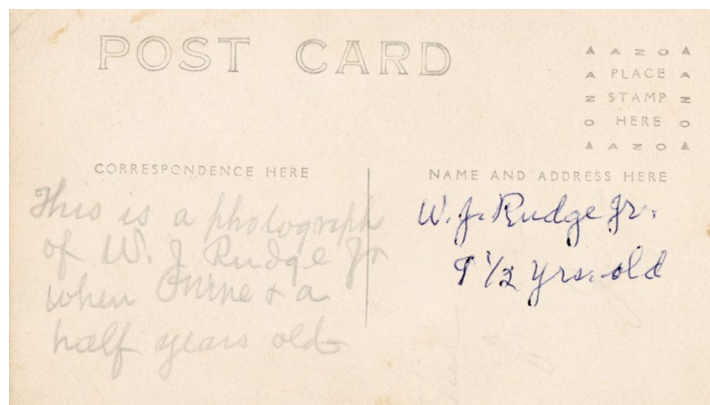 POST CARD
▲ A Z O ▲
A PLACE A
Z STAMP Z
O HERE O
▲ A Z O ▲
CORRESPONDENCE HERE
NAME AND ADDRESS HERE
This is a photograph
of W. J Rudge Jr
when nine & a
half years old
W. J. Rudge Jr.
9 1/2 yrs. old